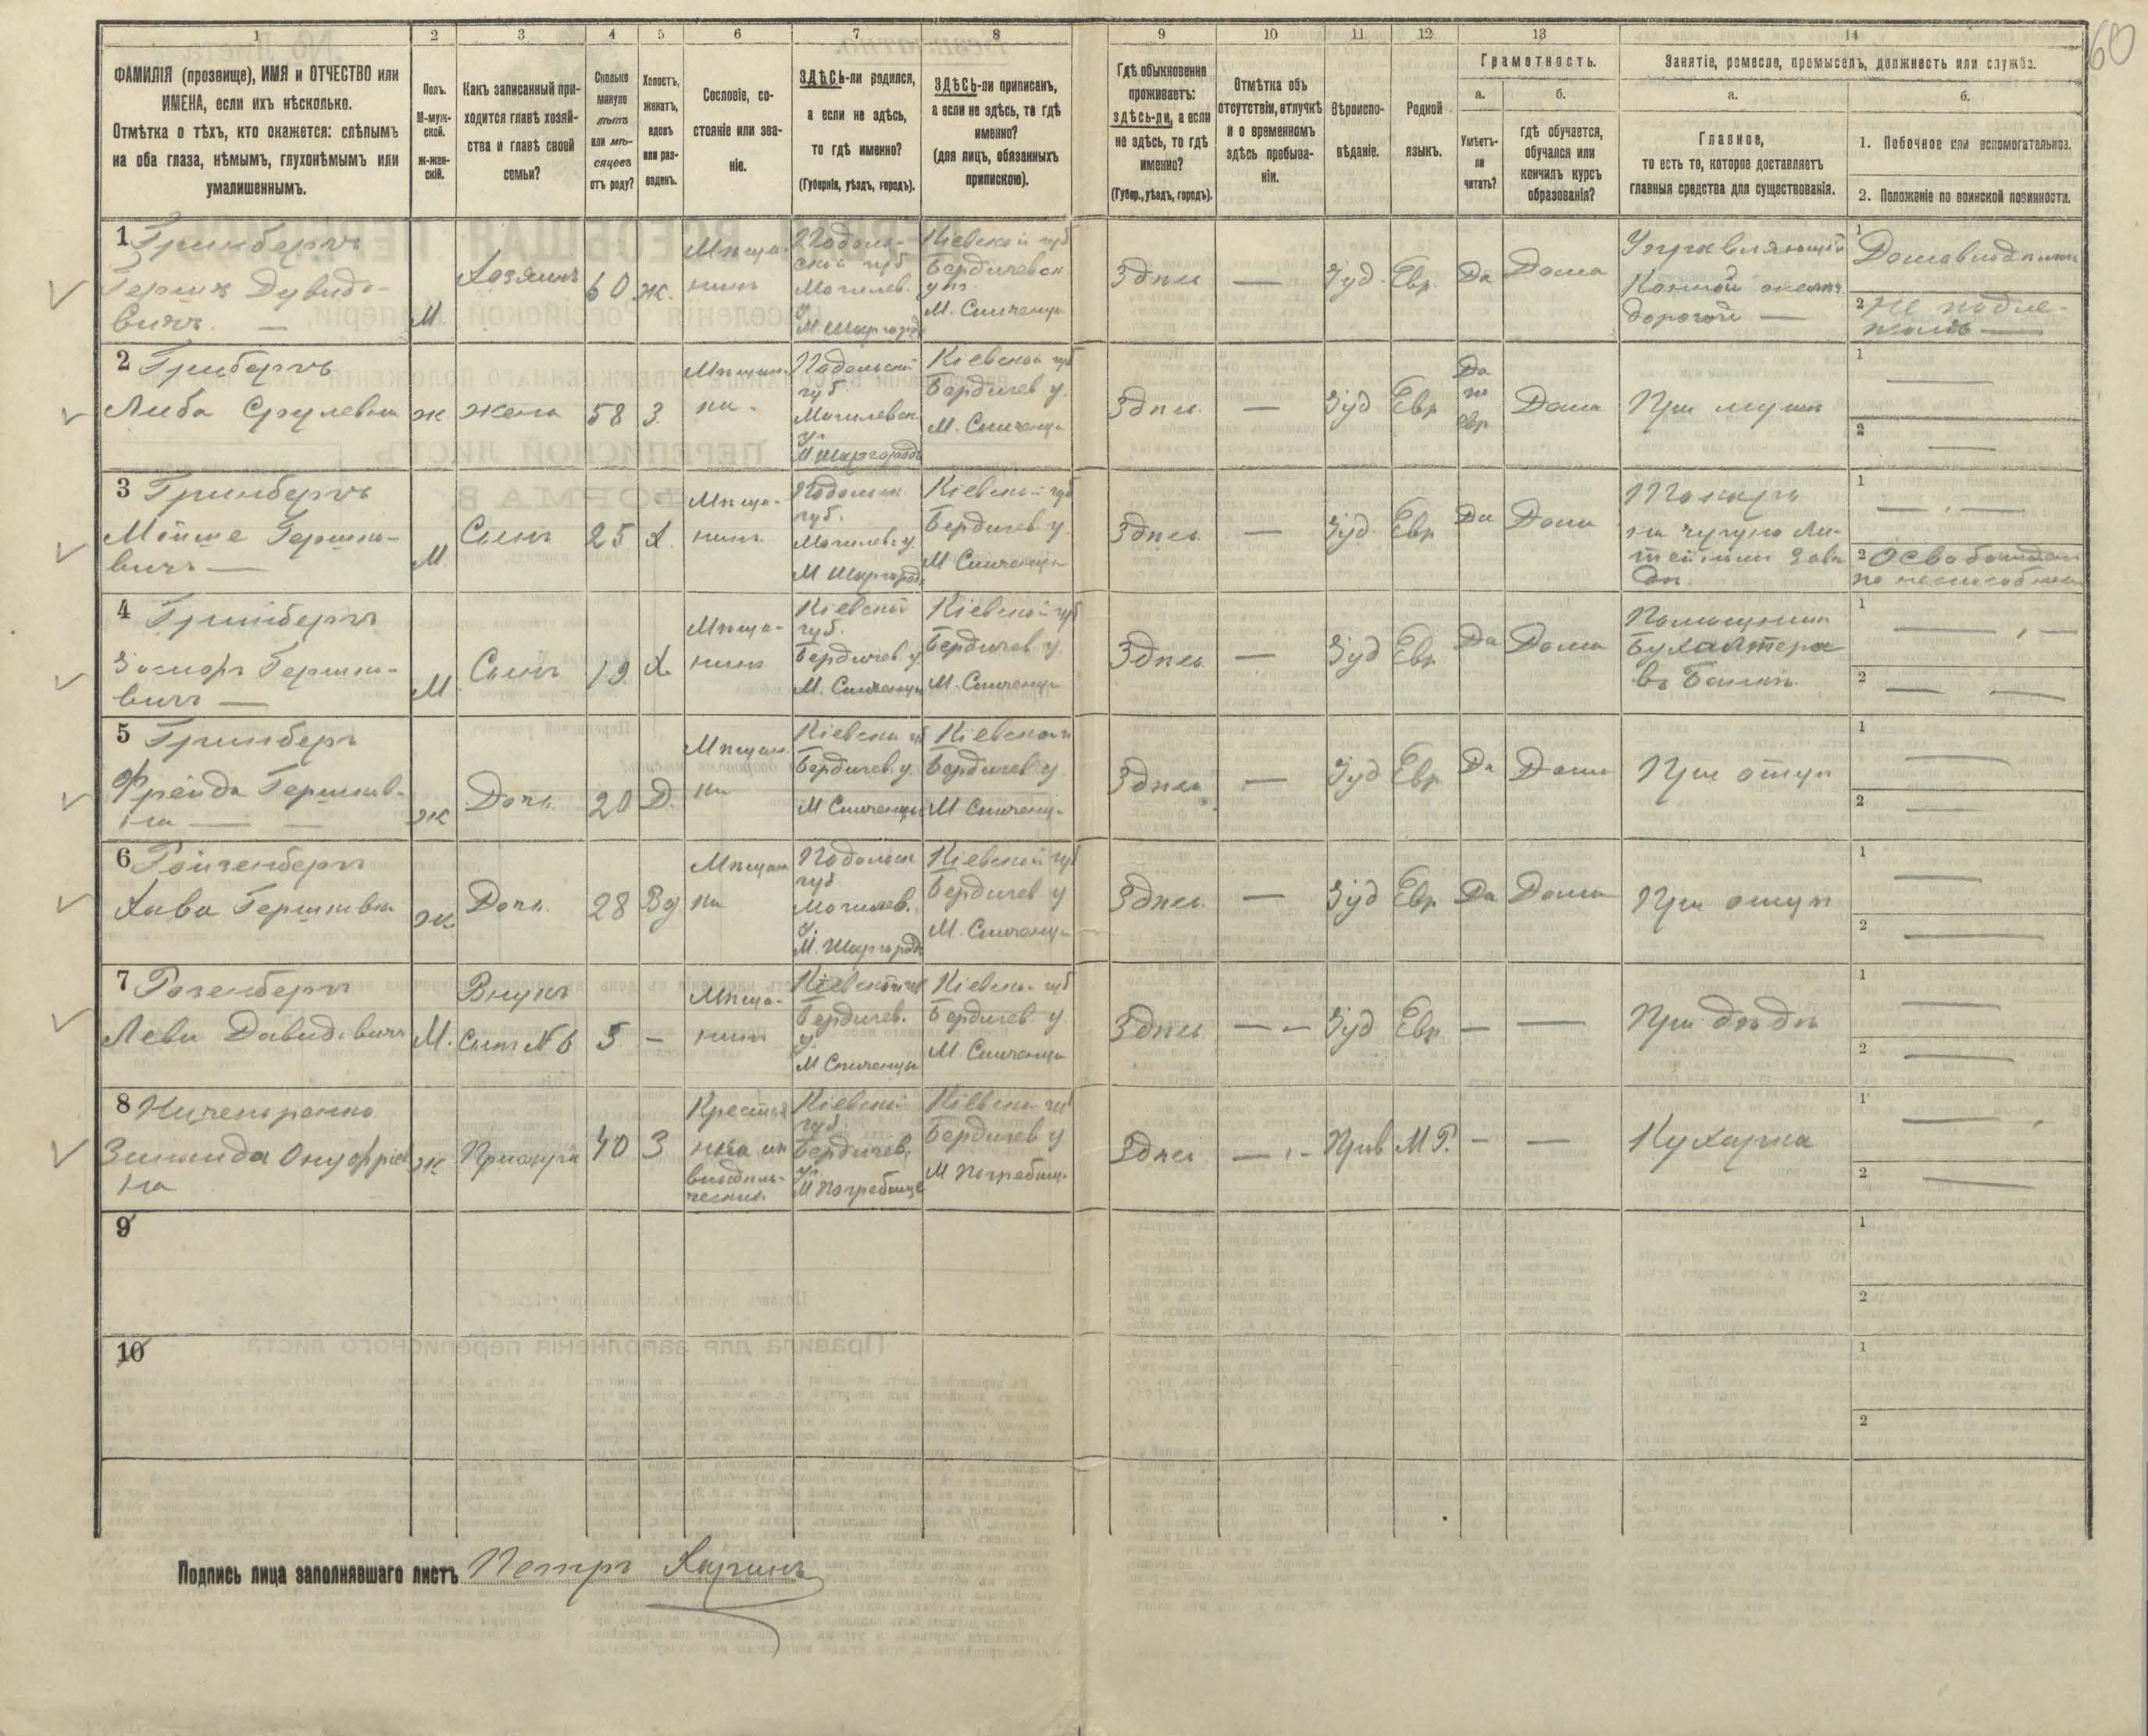 60
1
2
3
4
5
6
7
8
9
10
11
12
13
14
ФАМИЛІЯ (прозвище), ИМЯ и ОТЧЕСТВО или
ИМЕНА, если ихъ нѣсколько.
Отмѣтка о тѣхъ, кто окажется: слѣпымъ
на оба глаза, нѣмымъ, глухонѣмымъ или
умалишеннымъ.
Полъ.
М-муж-
ской.
Ж-жен-
скій.
Какъ записанный при-
ходится главѣ хозяй-
ства и главѣ своей
семьи?
Сколько
минуло
лѣтъ
или мѣ-
сяцевъ
отъ роду?
Холостъ,
женатъ,
вдовъ
или раз-
веденъ.
Сословіе, со-
стояніе или зва-
ніе.
ЗДѢСЬ-ли родился,
а если не здѣсь,
то гдѣ именно?
(Губернія, уѣздъ, городъ).
ЗДѢСЬ-ли приписанъ,
а если не здѣсь, то гдѣ
именно?
(для лицъ, обязанныхъ
припискою).
Гдѣ обыкновенно
проживаетъ:
здѣсь-ли, а если
не здѣсь, то гдѣ
именно?
(Губер., уѣздъ, городъ).
Отмѣтка объ
отсутствіи, отлучкѣ
и о временномъ
здѣсь пребыва-
ніи.
Вѣроиспо-
вѣданіе.
Родной
языкъ.
Грамотность.
а.
Умѣетъ-
ли
читать?
б.
гдѣ обучается,
обучался или
кончилъ курсъ
образованія?
Занятіе, ремесло, промыселъ, должность или служба.
а.
Главное,
то есть то, которое доставляетъ
главныя средства для существованія.
б.
1. Побочное или вспомогательное.
2. Положеніе по воинской повинности.
1 Гринбергъ
Гершъ Дувидо-
вичъ —
М
Хозяинъ
60
ж.
Мѣща-
нинъ
Подоль-
ской губ
Могилев.
у.
М. Шаргородъ
Кіевской губ
Бердичевск
уѣз.
М. Спиченцы
Здѣсь
—
Іуд.
Евр.
Да
Дома
Управляющій
Конной
дорогой —
1 Домовладѣлецъ
2 Не подле-
житъ —
2 Гринбергъ
Либа Срулевна
ж
жена
58
З.
Мѣщан-
ка
Подольской
губ.
Могилевск.
у.
М Шаргородъ
Кіевской губ
Бердичев у.
М. Спиченцы
Здѣсь
—
Іуд
Евр
Да
по
евр
Дома
При мужѣ
1 —
2 —
3 Гринбергъ
Мойше Гершко-
вичъ —
М.
Сынъ
25
Х.
Мѣща-
нинъ
Подольск.
губ.
Могилев. у.
М Шаргородъ
Кіевской губ
Бердичев у.
М Спиченцы
Здѣсь
—
Іуд
Евр
Да
Дома
Токарь
на чугуно ли-
тейномъ заво
дѣ.
1 —
2 Освобожденъ
по неспособности
4 Гринбергъ
Гершко-
вичъ —
М
Сынъ
19
Х
Мѣща-
нинъ
Кіевской
губ.
Бердичев. у.
М. Спиченцы
Кіевской губ
Бердичев у.
М. Спиченцы
Здѣсь
—
Іуд
Евр
Да
Дома
Помощникъ
Бухалтера
въ Банкѣ
1 —
2 — —
5 Гринбергъ
Фрейда Гершков-
на — —
ж
Дочь
20
Д.
Мѣщан
ка
Кіевской г
Бердичев. у.
М Спиченцы
Кіевской
Бердичев у
М Спиченцы
Здѣсь
—
Іуд
Евр
Да
Дома
При отцѣ
1 —
2 —
6 Ройзенбергъ
Хава Гершковна
ж
Дочь.
28
Вд
Мѣщан
ка
Подольск
губ
Могилев.
у.
М. Шаргородъ
Кіевской губ
Бердичев у
М. Спиченцы
Здѣсь
—
Іуд
Евр
Да
Дома
При отцѣ
1 —
2 —
7 Розенбергъ
Леви Давидовичъ
М.
Внукъ
Сынъ №6
5
—
Мѣща-
нинъ
Кіевской г
Бердичев.
у.
М Спиченцы
Кіевской губ
Бердичев у
М. Спиченцы
Здѣсь
— —
Іуд
Евр
—
—
При дѣдѣ
1 —
2 —
8 Ничепоренко
Зинаида Онуфріев
на
ж
Прислуга
40
З
Крестья
нка из
владѣль-
ческих.
Кіевской
губ
Бердичев.
у.
М Погребище
Кіевской губ
Бердичев у
М Погребище
Здѣсь
— —
Прав
М Р.
—
—
Кухарка
1 —
2 —
9
1
2
10
1
2
Подпись лица заполнявшаго листъ Петръ